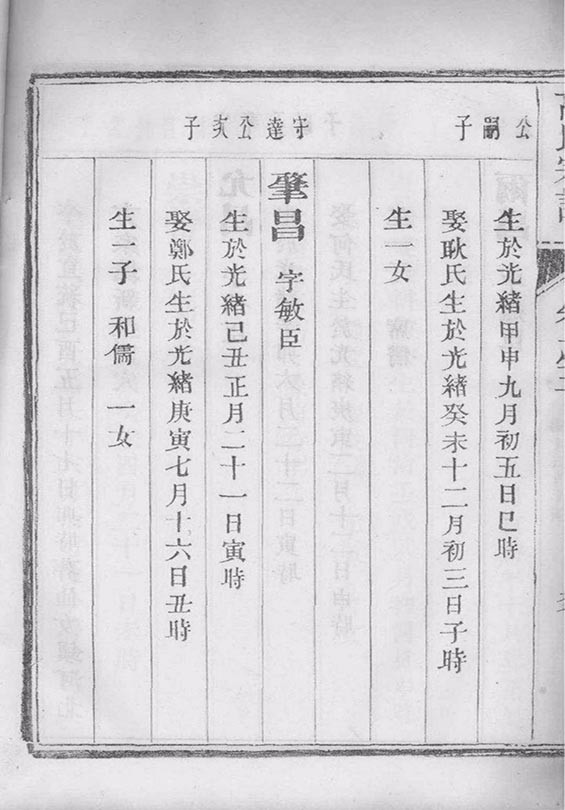 公嗣子
生於光緒甲申九月初五日巳時
娶耿氏生於光緒癸未十二月初三日子時
生一女
守達公次子
肇昌 字敏臣
生於光緒己丑正月二十一日寅時
娶鄭氏生於光緒庚寅七月十六日丑時
生一子 和儒 一女